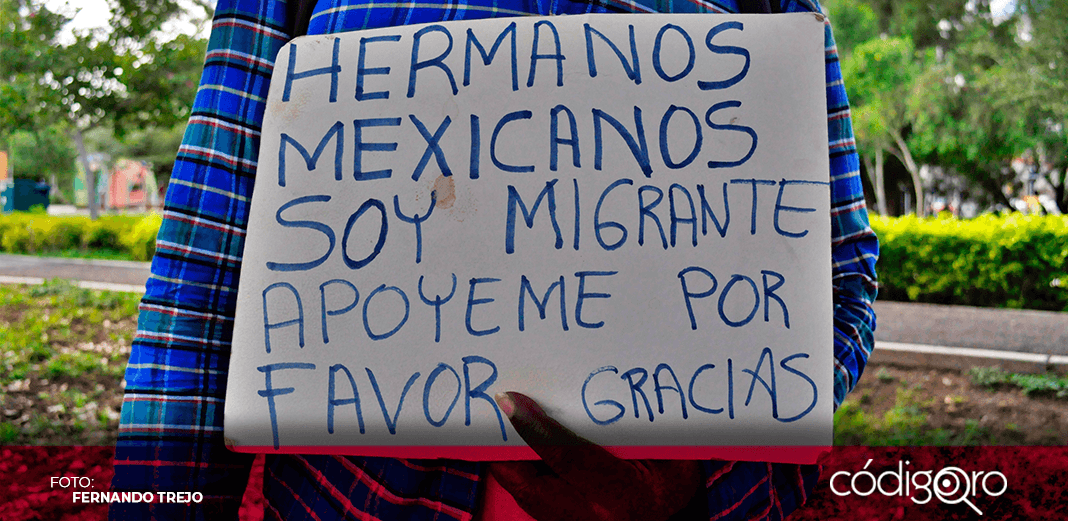 HERMANOS
MEXICANOS
SOY MIGRANTE
APOYEME POR
FAVOR GRACIAS
FOTO:
FERNANDO TREJO
códigoQro